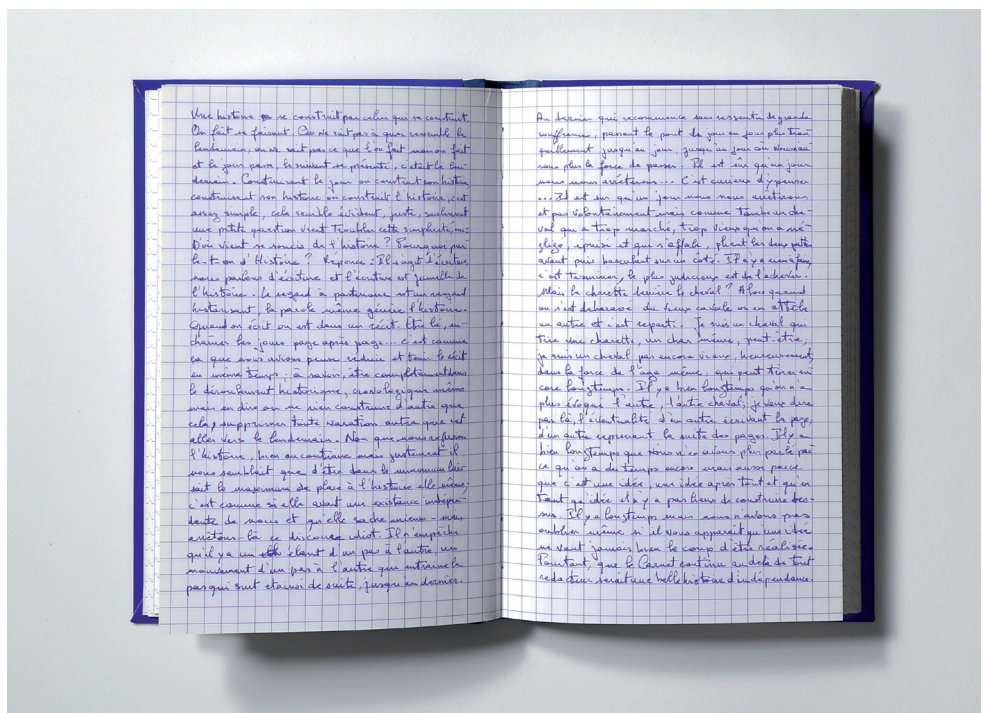 Une histoire se construit par celui qui se construit.
On fait se faisant. On ne sait pas à quoi ressemble le
lendemain, on ne sait pas ce que l'on fait mais on fait
et le jour passe, le suivant se présente, c'était le len-
demain. Construisant le jour on construit son histoire
construisant son histoire on construit l'histoire, c'est
assez simple, cela semble évident, juste, seulement
une petite question vient troubler cette simplicité, ou:
D'où vient se soucis de l'histoire ? Pourquoi par
le-t-on d'Histoire ? Réponse : Il s'agit d'écriture,
nous parlons d'écriture et l'écriture est jumelle de
l'histoire. Le regard à posteriori est un regard
historisant, la parole même génère l'histoire.
Quand on écrit on est dans un récit. Etre là, en-
chaîner les jours page après page... c'est comme
ça que nous avions pensé réduire et tenir le récit
en même temps : à savoir, être complètement dans
le déroulement historique, chronologique même
mais en dire ou ne rien construire d'autre que
cela, supprimer toute variation autre que cet
aller vers le lendemain. Non que nous refusions
l'histoire, bien au contraire mais justement il
nous semblait que d'être dans le minimum lais
sait le maximum de place à l'histoire elle même;
c'est comme si elle avait une existence indépen-
dante de nous et qu'elle sache mieux - mais
arrêtons-là ce discours idiot. Il n'empêche
qu'il y a un élant d'un pas à l'autre, un
mouvement d'un pas à l'autre qui entraîne le
pas qui suit et ainsi de suite, jusqu'au dernier.
Au dernier qui recommence sans ressentir de grande
souffrance, passant le pont de jour en jour plus tran-
quillement jusqu'au jour, jusqu'au jour où nous n'au
rons plus la force de passer. Il est sûr qu'un jour
nous nous arrêterons... C'est curieux d'y penser
... Il est sûr qu'un jour nous nous arrêterons
et pas volontairement mais comme tombe un che-
val qui a trop marché, trop vieux qu'on a né-
gligé, épuisé et qui s'affale, pliant les deux pattes
avant puis basculant sur un coté. Il n'y a rien à faire,
c'est terminer, le plus judicieux est de l'achever.
Mais la charette derrière le cheval ? Alors quand
on s'est débarassé du vieux cavale on en attèle
un autre et c'est reparti. Je suis un cheval qui
tire une charette, un char même, peut-être,
je suis un cheval pas encore vieux, heureusement,
dans la force de l'âge même, qui peut tirer en
core longtemps. Il y a bien longtemps qu'on n'a
plus évoqué l'autre, l'autre cheval; je veux dire
par là, l'éventualité d'un autre écrivant la page,
d'un autre reprenant la suite des pages. Il y a
bien longtemps que nous n'en avions plus parlé par
ce qu'on a du temps encore mais aussi parce
que c'est une idée, une idée après tout et qu'en
tant qu'idée il n'y a pas lieu de construire des-
sus. Il y a longtemps mais nous n'avons pas
oublier même si il nous apparait qu'une idée
ne vaut jamais bien le coup d'être réalisée.
Pourtant, que le Carnet continu au delà de tout
rédacteur serait une belle histoire d'indépendance.